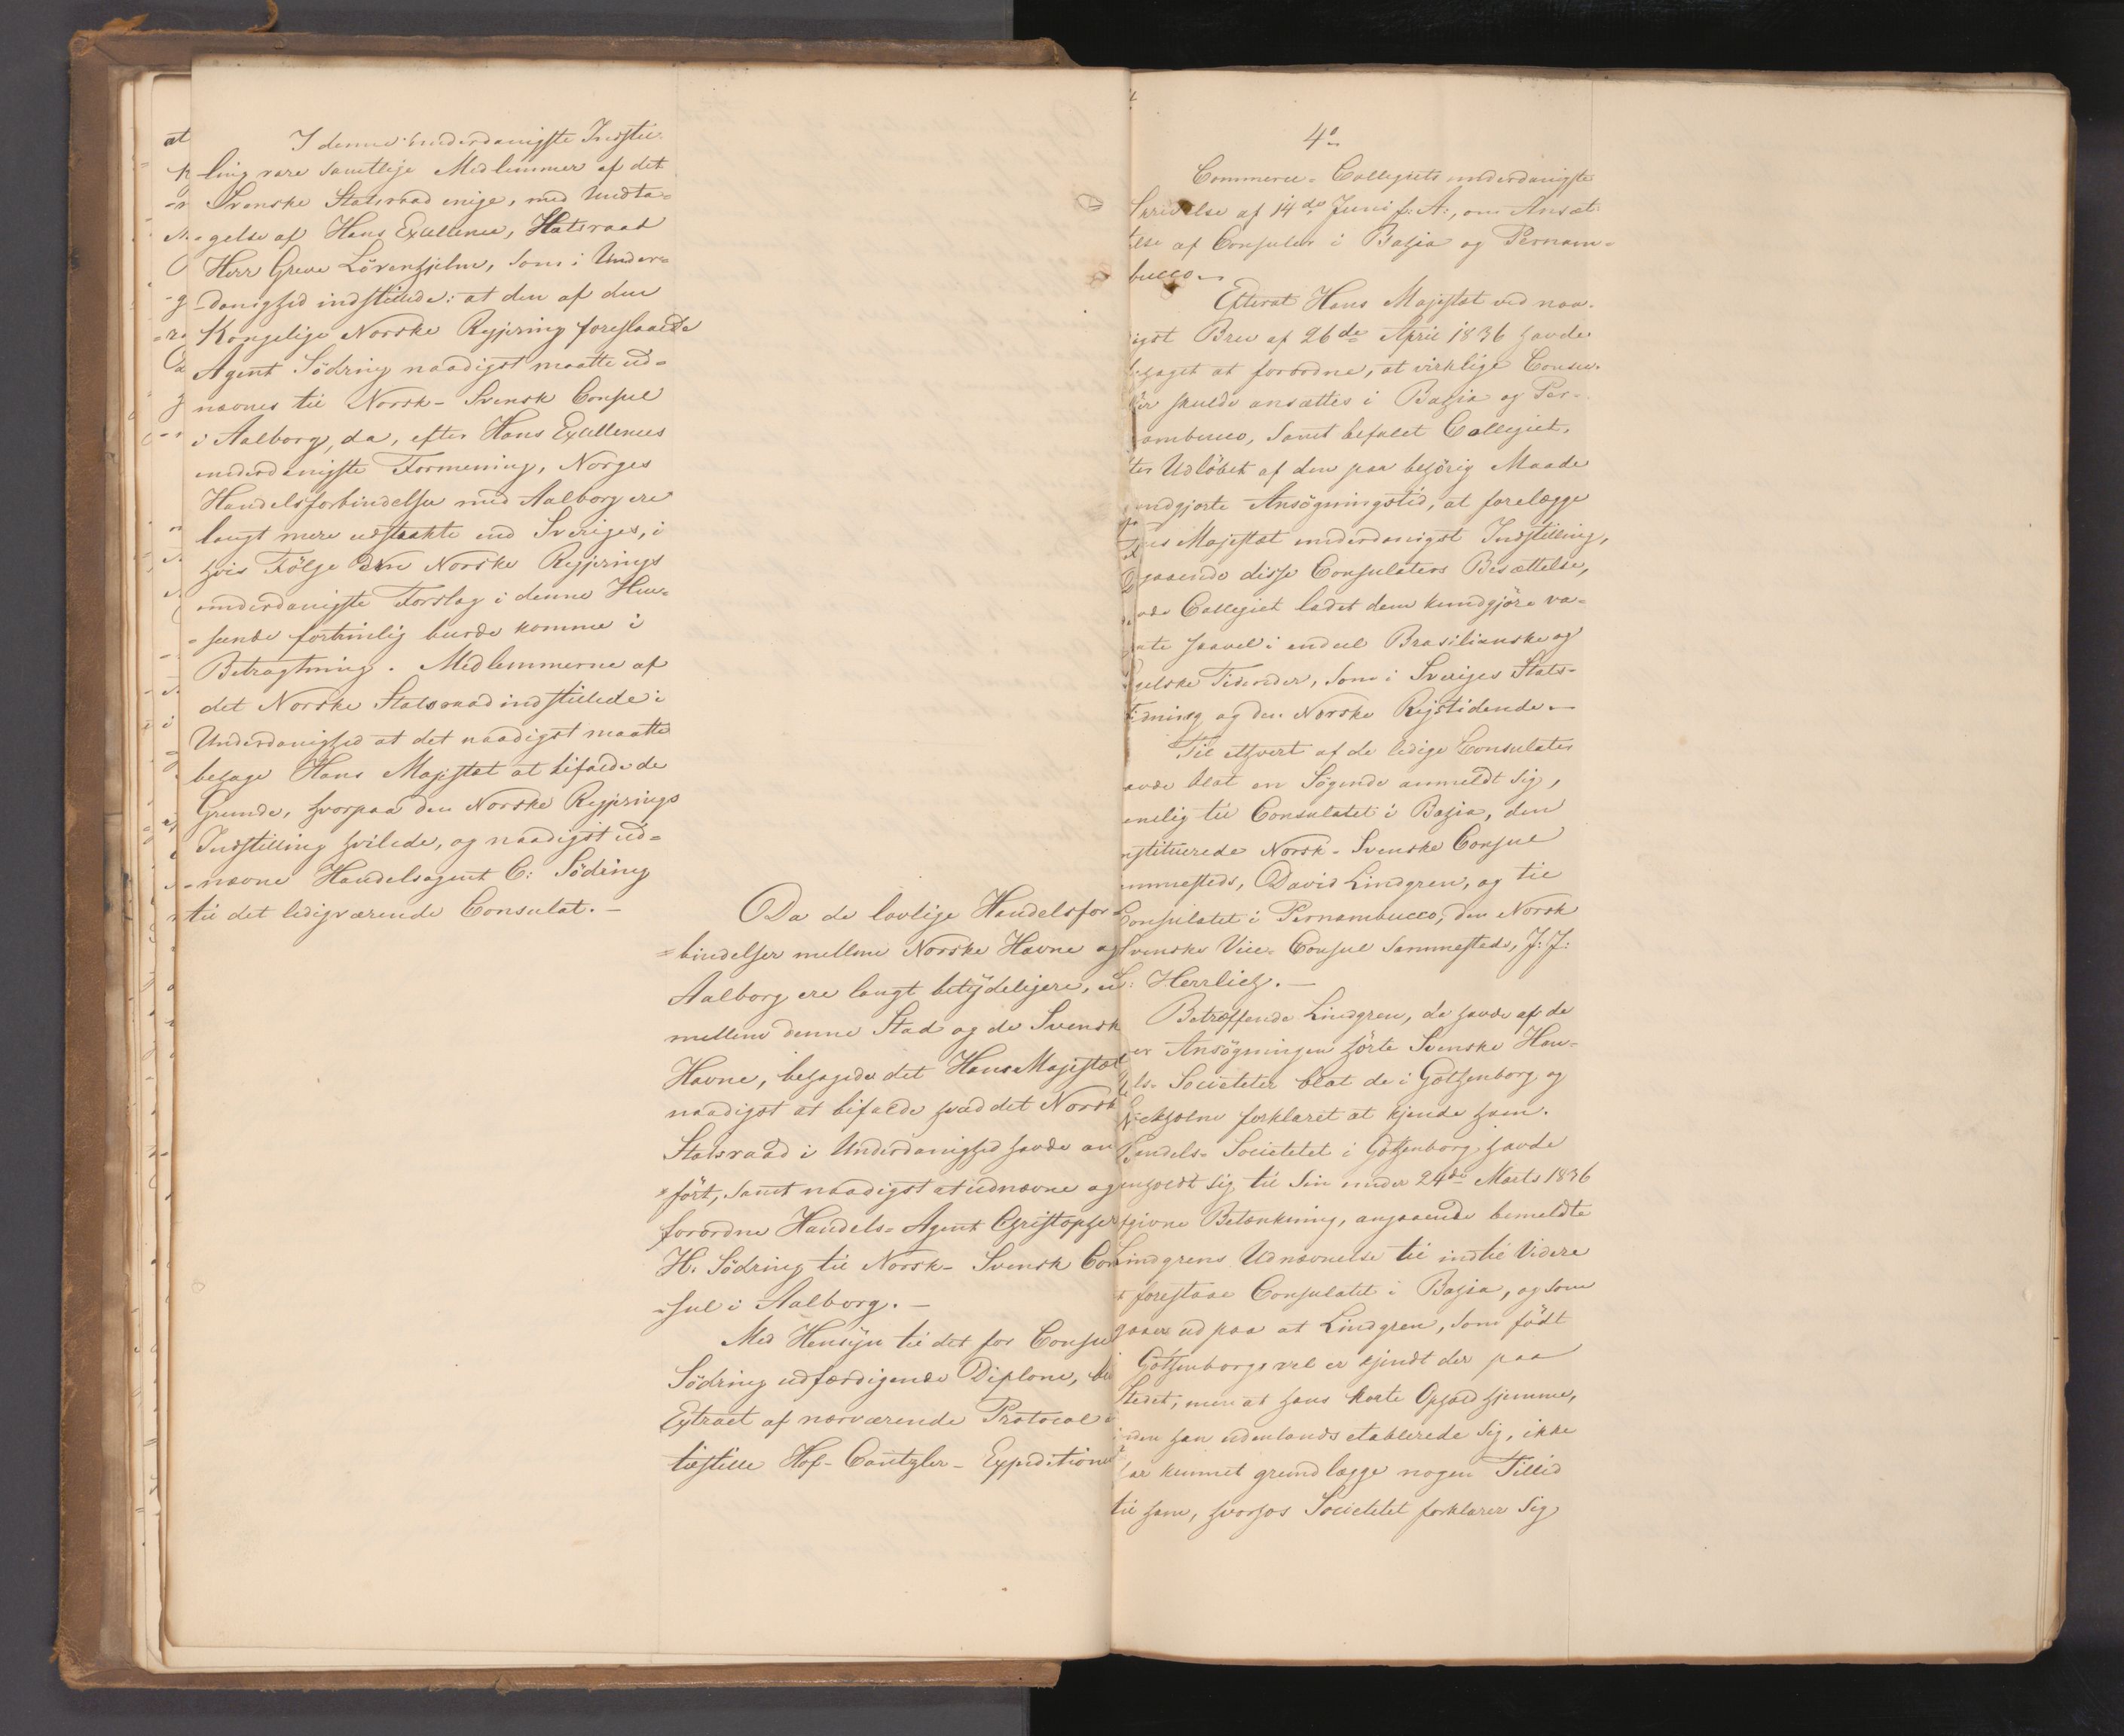 I denne underdanigste Indstil¬
ling vare samtlige Medlemmer af det
Svenske Statsraad enige, med Undta=
=gelse af Hans Excellence, Statsraad
Herr Greve Lövenhjelm, som i Under=
=danighed indstillede: at den af den
Kongelige Norske Regjering foreslaaede
Agent Södring naadigst maatte ud=
nævnes til Norsk-Svensk Consul
i Aalborg, da, efter Hans Excellences
underdanigste Formening, Norges
Handelsforbindelser med Aalborg ere
langt mere udstrakte end Sveriges, i
hvis Fölge den Norske Regjerings
underdanigste Forslag i denne Hen=
=seende fortrinlig burde komme i
Betragtning. Medlemmerne af
det Norske Statsraad indstillede i
Underdanighed at det naadigst maatte
behage Hans Majestæt at bifalde de
Grunde, hvorpaa den Norske Regjerings
Indstilling hvilede, og naadigst ud=
=nævne Handelsagent C: Södring
til det ledigværende Consulat.—
Da de lovlige Handelsfor=
=bindelser mellem Norske Havne og
Aalborg ere langt betydeligere, e
mellem denne Stad og de Svensk
Havne, behagede det Hans Majestæt
naadigst at bifalde hvad det Norsk
Statsraad i Underdanighed havde an
=fört, samt naadigst at udnævne og
forordne Handels-Agent Christopher
H. Södring til Norsk-Svensk Con
=sul i Aalborg.—
Med Hensyn til det for Consul
Södring udfærdigende Diplom, bli
Extract af nærværende Protocol
tilstille Hof-Cantzler-Expeditionen
4o
Commerce-Collegiets underdanigste
Skrivelse af 14de Juni f: A:, om Ansæt¬
telse af Consuler i Bahia og Pernam=
bucco.
Efterat Hans Majestæt ved naa¬
digst Brev af 26de April 1836 havde
behaget at forordne, at virkelige Consu¬
ler skulde ansættes i Bahia og Per¬
ambucco, samt befalet Collegiet,
ter Udlöbet af den paa behörig Maade
undgjorte Ansögningstid, at forelægge
ns Majestæt underdanigst Indstilling,
gaaende disse Consulaters Besættelse,
ade Collegiet ladet dem kundgjöre va=
ante saavel i endeel Brasilianske og
gelske Tidender, som i Sveriges Stats=
Tidning og den Norske Rigstidende.—
Til ethvert af de ledige Consulater
avde blot en Sögende anmeldt sig,
emlig til Consulatet i Bahia, den
nstituerede Norsk-Svenske Consul
ammesteds, David Lindgren, og til
Consulatet i Pernambucco, den Norsk
Svenske Vice-Consul sammesteds, J: J:
: Herrlich.—
Betræffende Lindgren, da havde af de
er Ansögningen hörte Svenske Han=
els-Societeter blot de i Göthenborg og
ckholm forklaret at kjende ham.
Handels-Societetet i Göthenborg havde
enholdt sig til sin under 24de Marts 1836
fgivne Betænkning, angaaende bemeldte
Lindgrens Udnævnelse til indtil Videre
t forestaae Consulatet i Bahia, og som
gaaer ud paa at Lindgren, som födt
Göthenborgs vel er kjendt der paa
Stedet, men at hans korte Ophold hjemme,
inden han udenlands etablerede sig, ikke
har kunnet grundlægge nogen Tillid
til ham, hvorhos Societetet forklarer sig